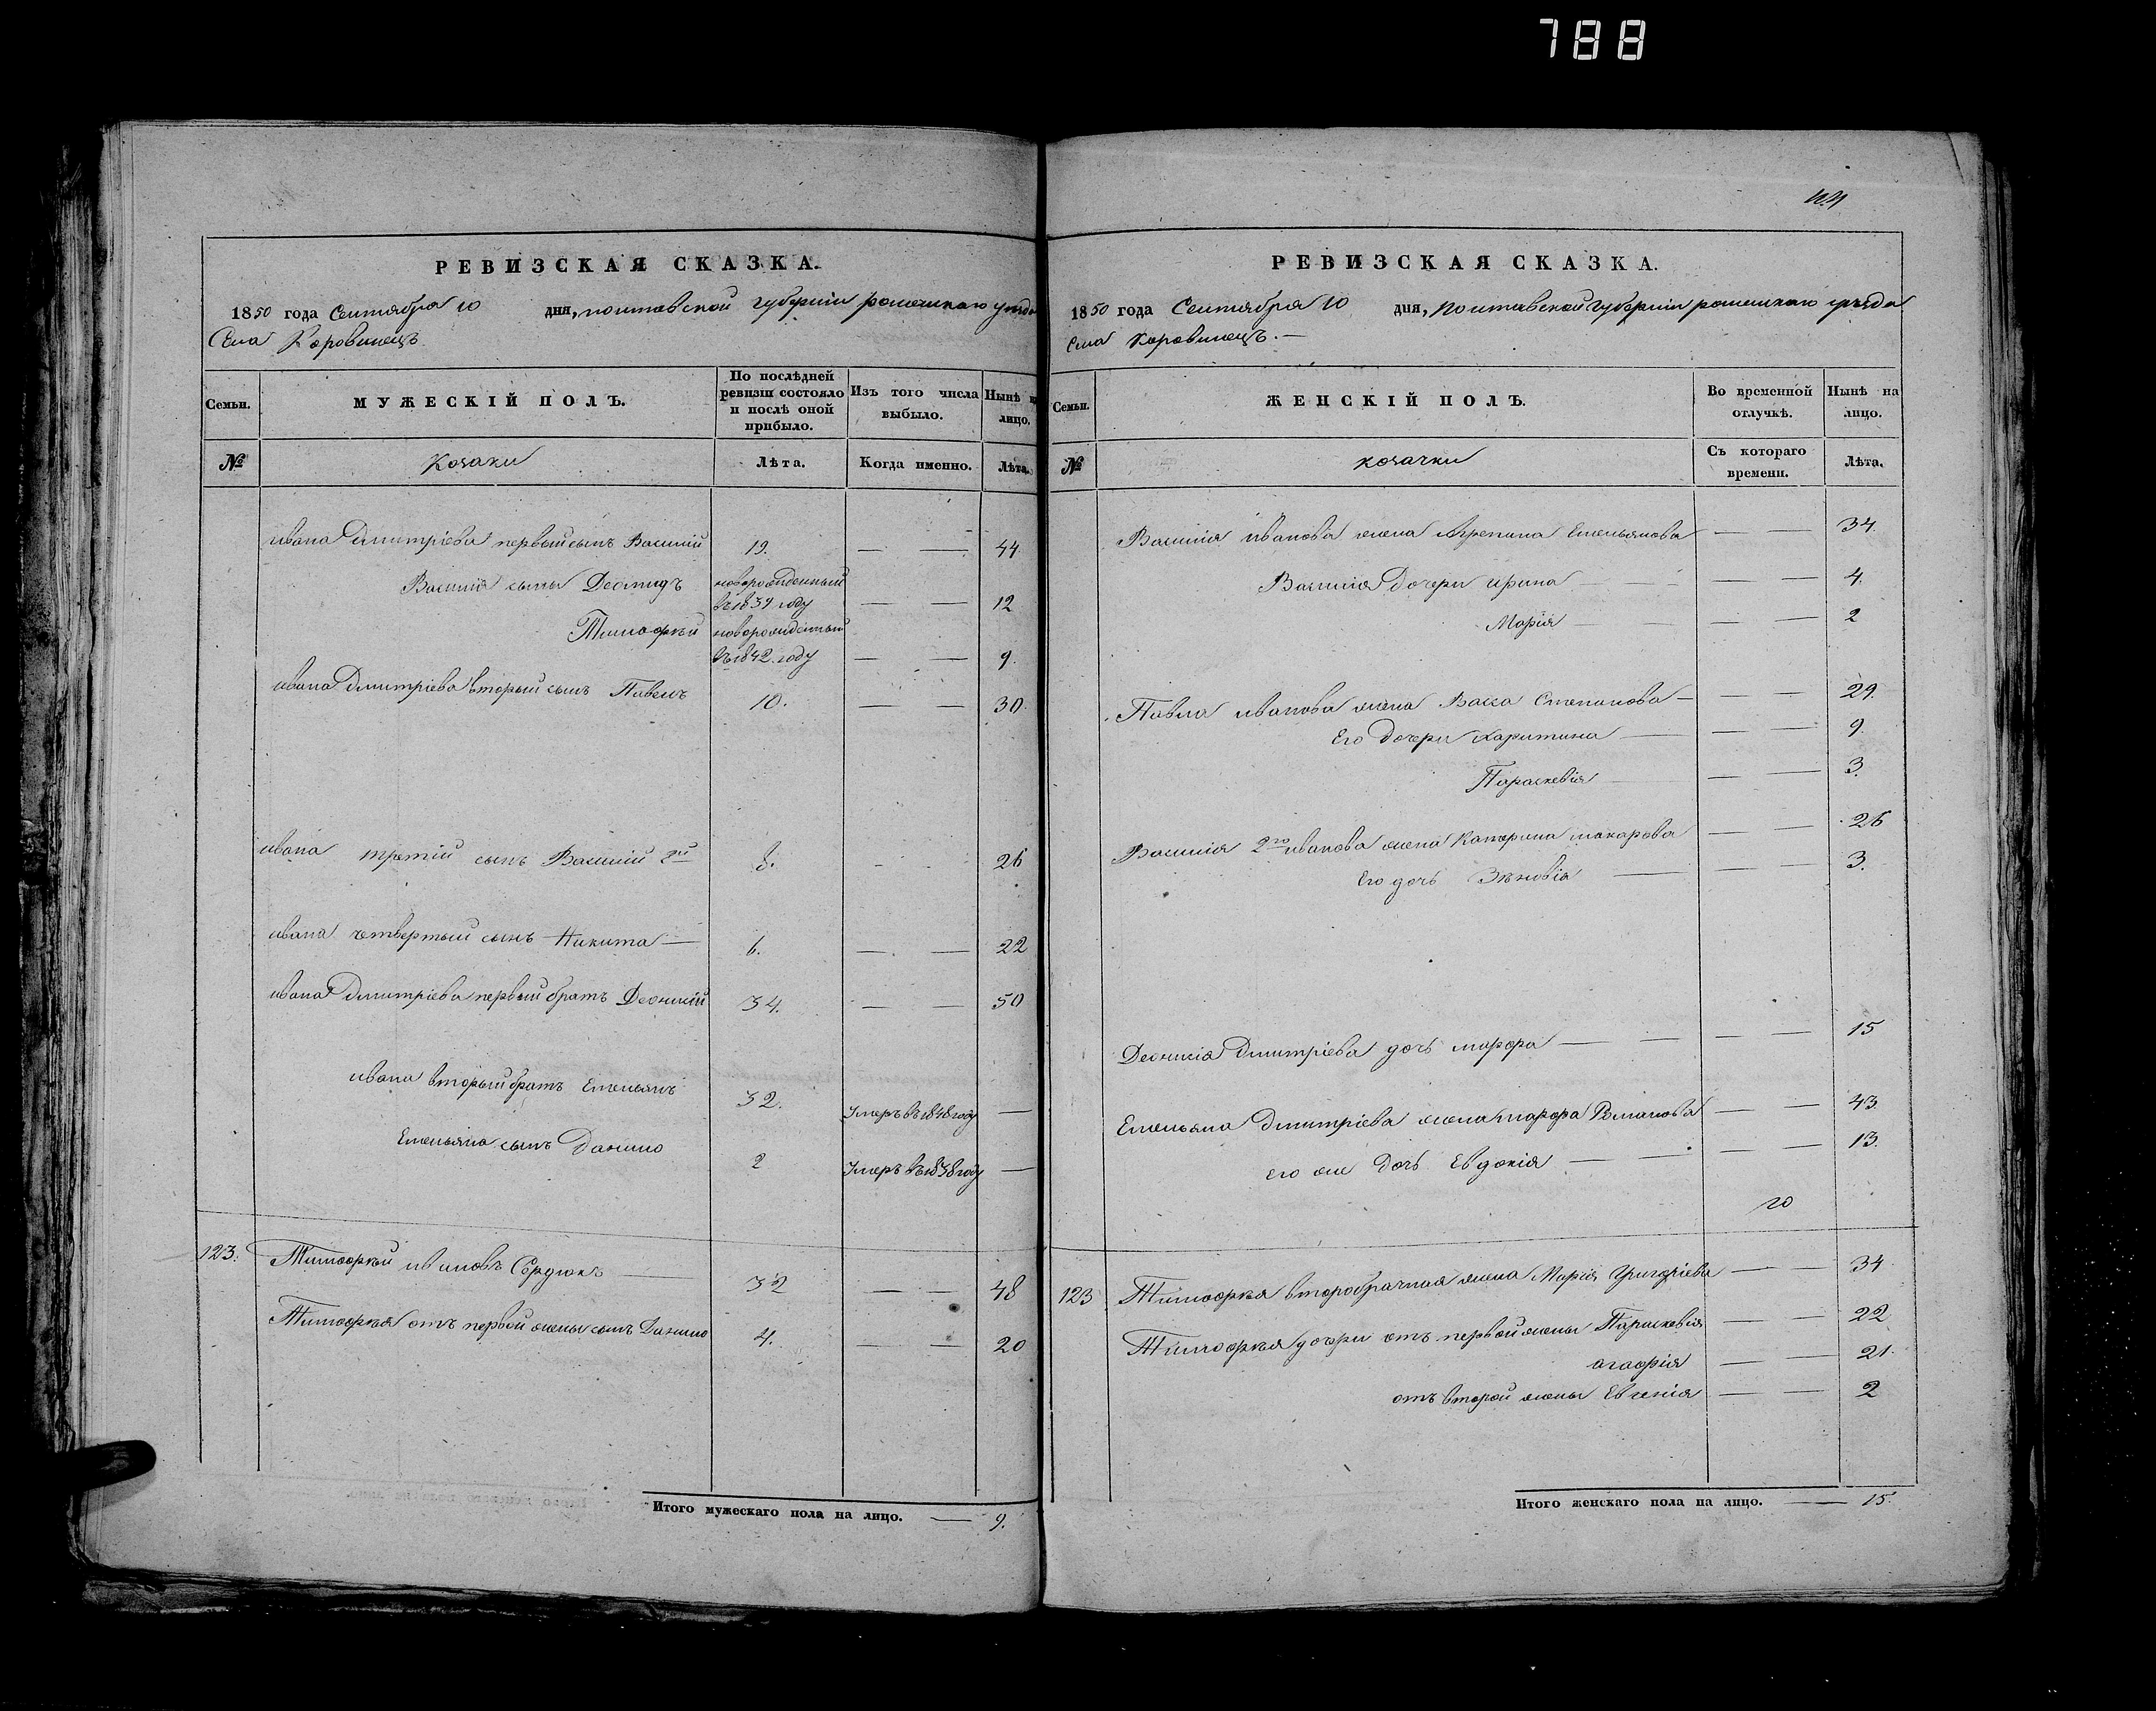 788
РЕВИЗСКАЯ СКАЗКА.
1850 года Сентября 10 дня, полтавской губерніи роменскаго уезда
Села Коровинецъ
Семьи.
МУЖЕСКІЙ ПОЛЪ.
По послѣдней ревизіи состояло и послѣ оной прибыло.
Изъ того числа выбыло.
Нынѣ на лицо.
№
Козаки
Лѣта.
Когда именно.
Лѣта.
ивана Дмитріева первый сынъ Василій 19. — — 44
Василія сыны Деомидъ новорожденный
въ 1839 году — — 12
Тимофѣй новорожденный
въ 1842 году — — 9.
ивана Дмитріева вторый сынъ Павелъ 10. — — 30
ивана третій сынъ Василій 2й 8. 26
ивана четвертый сынъ Никита — 6. — — 22
ивана Дмитріева первый братъ Деонисій 34. — — 50
ивана вторый братъ Емельянъ 32. Умеръ въ 1848 году —
Емельяна сынъ Данило 2 Умеръ въ 1838 году —
123. Тимофѣй ивановъ Сердюкъ — 32 — — 48
Тимофѣя отъ первой жены сынъ Данило 4. — — 20
Итого мужескаго пола на лицо. — 9.
РЕВИЗСКАЯ СКАЗКА.
1850 года Сентября 10 дня, полтавской губерніи роменскаго уезда
села Коровинецъ. —
Семьи.
ЖЕНСКІЙ ПОЛЪ.
Во временной отлучкѣ.
Нынѣ на лицо.
№
козачки
Съ котораго времени.
Лѣта.
Василія иванова жена Агрепина Емельянова — — 34.
Василія дочери ирина — — 4.
Марія — — 2
Павла иванова жена Васса Степанова — — — 29.
Его дочери Харитина — — — 9.
Параскевія — — — 3.
Василія 2го иванова жена Катерина макарова — — 26
Его дочь Зѣновія — — — 3.
Деонисія Дмитріева дочь марфа — — — 15
Емельяна Дмитріева жена марфа Романова — — 43
Его же Дочь Евдокія — — — 13.
123 Тимофѣя второбрачная жена Марія Григоріева — — 34
Тимофѣя дочери отъ первой жены Параскевія — — 22
агафія — — 21.
отъ второй жены Евгенія — — 2
Итого женскаго пола на лицо. — 15.